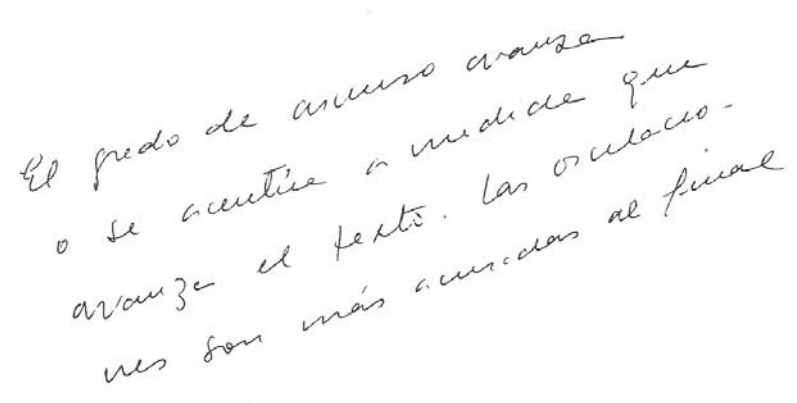 El grado de ascenso avanza
o se acentúa a medida que
avanza el texto. Las oscilacio-
nes son más acusadas al final